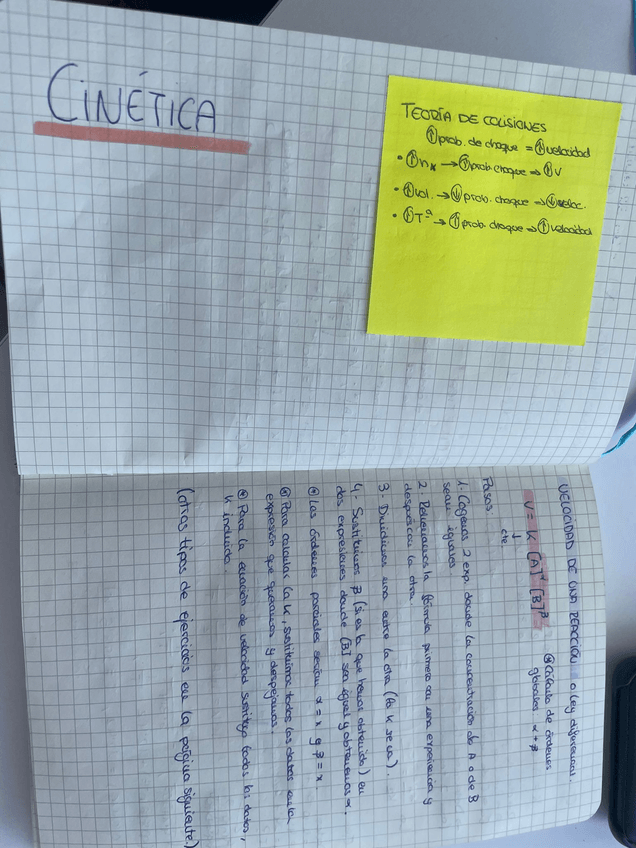 CINÉTICA
TEORÍA DE COLISIONES
↑ prob. de choque = ↑ velocidad
• ↑ nx → ↑ prob. choque → ↑ v
• ↑ vol. → ↓ prob. choque → ↓ veloc.
• ↑ Tª → ↑ prob. choque → ↑ velocidad
VELOCIDAD DE UNA REACCIÓN o ley diferencial.
V = k [A]^α [B]^β
↓
cte.
* Cálculo de órdenes
globales α + β
Pasos
1. Cogemos 2 exp. donde la concentración de A o de B
sean iguales
2. Rellenamos la fórmula primero con una experiencia y
después con la otra.
3. Dividimos una entre la otra (la k se va).
4. Sustituimos β (si es la que hemos obtenido) en
dos expresiones donde [B] sea igual y obtenemos α.
* Los órdenes parciales serían α = x y β = x
* Para calcular la k, sustituimos todos los datos en la
expresión que queramos y despejamos.
* Para la ecuación de velocidad sustituyo todos los datos,
k incluida.
(otros tipos de ejercicios en la página siguiente.)